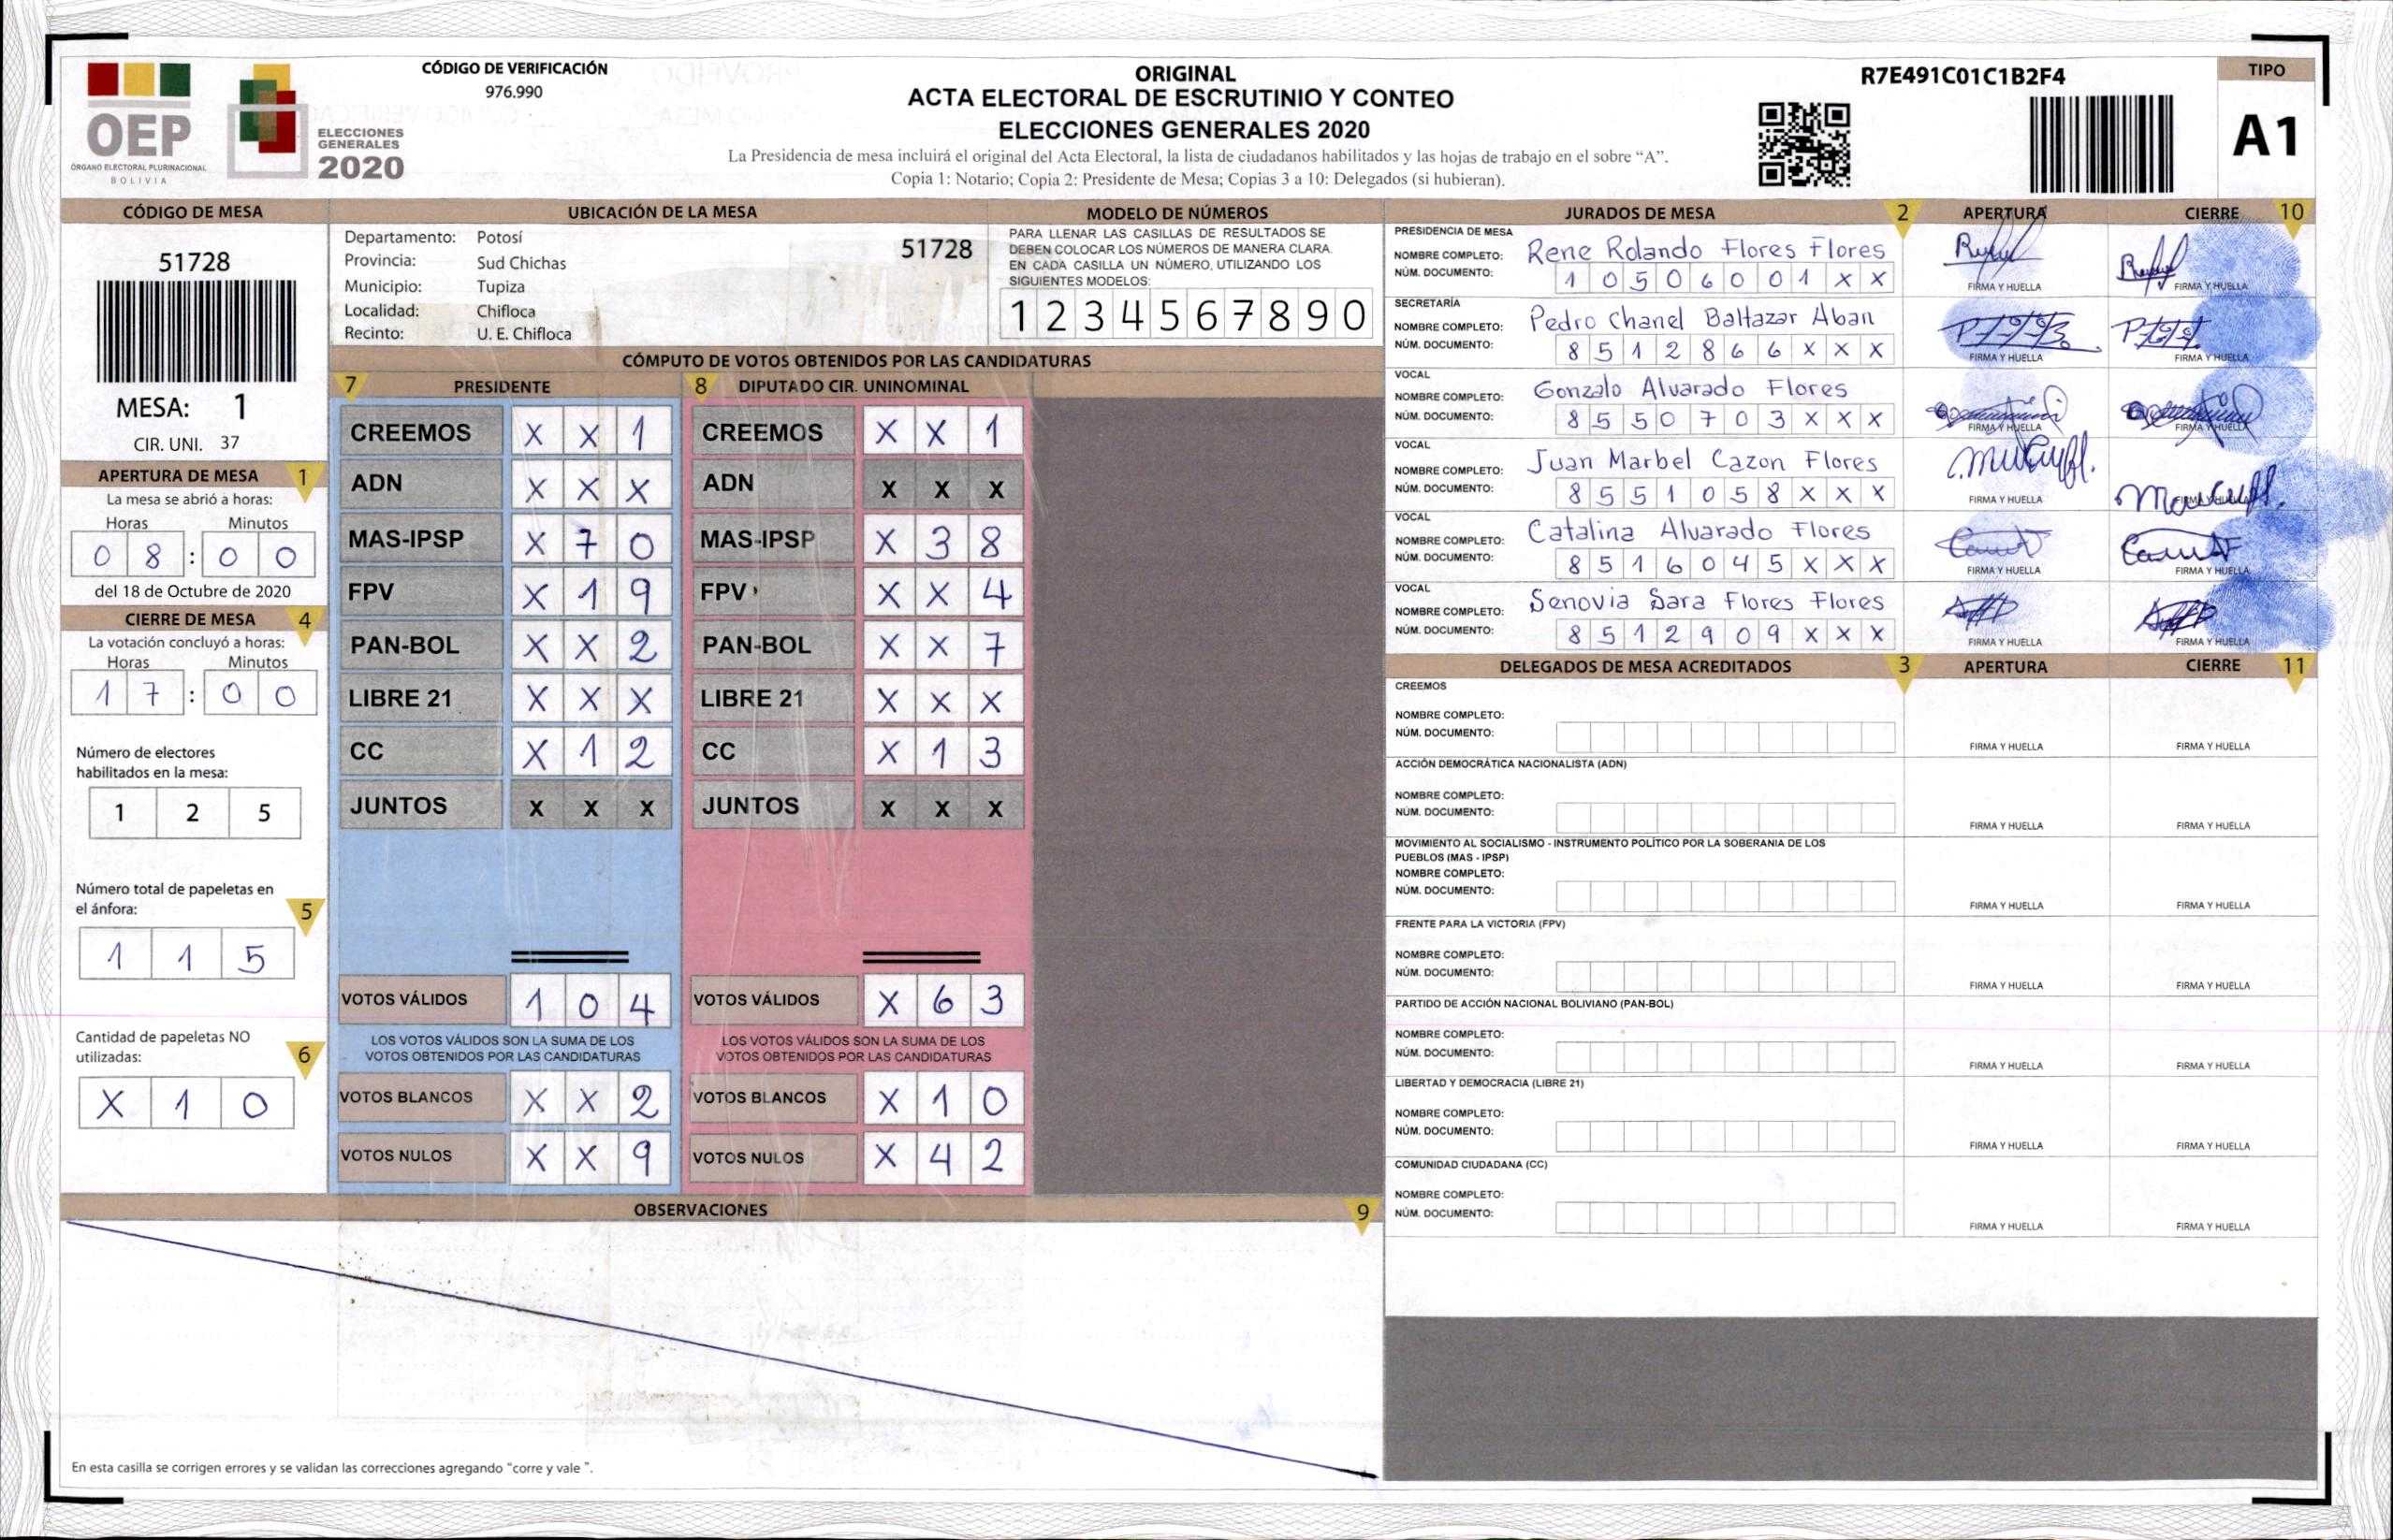 OEP
ÓRGANO ELECTORAL PLURINACIONAL
BOLIVIA
ELECCIONES
GENERALES
2020
CÓDIGO DE VERIFICACIÓN
976.990
ORIGINAL
ACTA ELECTORAL DE ESCRUTINIO Y CONTEO
ELECCIONES GENERALES 2020
La Presidencia de mesa incluirá el original del Acta Electoral, la lista de ciudadanos habilitados y las hojas de trabajo en el sobre “A”.
Copia 1: Notario; Copia 2: Presidente de Mesa; Copias 3 a 10: Delegados (si hubieran).
R7E491C01C1B2F4
TIPO
A1
CÓDIGO DE MESA
51728
MESA: 1
CIR. UNI. 37
APERTURA DE MESA 1
La mesa se abrió a horas:
Horas Minutos
0 8 : 0 0
del 18 de Octubre de 2020
CIERRE DE MESA 4
La votación concluyó a horas:
Horas Minutos
1 7 : 0 0
Número de electores
habilitados en la mesa:
1 2 5
Número total de papeletas en
el ánfora:
5
1 1 5
Cantidad de papeletas NO
utilizadas:
6
X 1 0
UBICACIÓN DE LA MESA
Departamento: Potosí
51728
Provincia: Sud Chichas
Municipio: Tupiza
Localidad: Chifloca
Recinto: U. E. Chifloca
MODELO DE NÚMEROS
PARA LLENAR LAS CASILLAS DE RESULTADOS SE
DEBEN COLOCAR LOS NÚMEROS DE MANERA CLARA.
EN CADA CASILLA UN NÚMERO, UTILIZANDO LOS
SIGUIENTES MODELOS:
1 2 3 4 5 6 7 8 9 0
CÓMPUTO DE VOTOS OBTENIDOS POR LAS CANDIDATURAS
7 PRESIDENTE 8 DIPUTADO CIR. UNINOMINAL
CREEMOS X X 1 CREEMOS X X 1
ADN X X X ADN X X X
MAS-IPSP X 7 0 MAS-IPSP X 3 8
FPV X 1 9 FPV X X 4
PAN-BOL X X 2 PAN-BOL X X 7
LIBRE 21 X X X LIBRE 21 X X X
CC X 1 2 CC X 1 3
JUNTOS X X X JUNTOS X X X
VOTOS VÁLIDOS 1 0 4 VOTOS VÁLIDOS X 6 3
LOS VOTOS VÁLIDOS SON LA SUMA DE LOS LOS VOTOS VÁLIDOS SON LA SUMA DE LOS
VOTOS OBTENIDOS POR LAS CANDIDATURAS VOTOS OBTENIDOS POR LAS CANDIDATURAS
VOTOS BLANCOS X X 2 VOTOS BLANCOS X 1 0
VOTOS NULOS X X 9 VOTOS NULOS X 4 2
OBSERVACIONES 9
En esta casilla se corrigen errores y se validan las correcciones agregando “corre y vale ”.
JURADOS DE MESA 2 APERTURA CIERRE 10
PRESIDENCIA DE MESA
NOMBRE COMPLETO: Rene Rolando Flores Flores
NÚM. DOCUMENTO: 1 0 5 0 6 0 0 1 X X
FIRMA Y HUELLA FIRMA Y HUELLA
SECRETARÍA
NOMBRE COMPLETO: Pedro Chanel Baltazar Aban
NÚM. DOCUMENTO: 8 5 1 2 8 6 6 X X X
FIRMA Y HUELLA FIRMA Y HUELLA
VOCAL
NOMBRE COMPLETO: Gonzalo Alvarado Flores
NÚM. DOCUMENTO: 8 5 5 0 7 0 3 X X X
FIRMA Y HUELLA FIRMA Y HUELLA
VOCAL
NOMBRE COMPLETO: Juan Marbel Cazon Flores
NÚM. DOCUMENTO: 8 5 5 1 0 5 8 X X X
FIRMA Y HUELLA FIRMA Y HUELLA
VOCAL
NOMBRE COMPLETO: Catalina Alvarado Flores
NÚM. DOCUMENTO: 8 5 1 6 0 4 5 X X X
FIRMA Y HUELLA FIRMA Y HUELLA
VOCAL
NOMBRE COMPLETO: Senovia Sara Flores Flores
NÚM. DOCUMENTO: 8 5 1 2 9 0 9 X X X
FIRMA Y HUELLA FIRMA Y HUELLA
DELEGADOS DE MESA ACREDITADOS 3 APERTURA CIERRE 11
CREEMOS
NOMBRE COMPLETO:
NÚM. DOCUMENTO:
FIRMA Y HUELLA FIRMA Y HUELLA
ACCIÓN DEMOCRÁTICA NACIONALISTA (ADN)
NOMBRE COMPLETO:
NÚM. DOCUMENTO:
FIRMA Y HUELLA FIRMA Y HUELLA
MOVIMIENTO AL SOCIALISMO - INSTRUMENTO POLÍTICO POR LA SOBERANIA DE LOS
PUEBLOS (MAS - IPSP)
NOMBRE COMPLETO:
NÚM. DOCUMENTO:
FIRMA Y HUELLA FIRMA Y HUELLA
FRENTE PARA LA VICTORIA (FPV)
NOMBRE COMPLETO:
NÚM. DOCUMENTO:
FIRMA Y HUELLA FIRMA Y HUELLA
PARTIDO DE ACCIÓN NACIONAL BOLIVIANO (PAN-BOL)
NOMBRE COMPLETO:
NÚM. DOCUMENTO:
FIRMA Y HUELLA FIRMA Y HUELLA
LIBERTAD Y DEMOCRACIA (LIBRE 21)
NOMBRE COMPLETO:
NÚM. DOCUMENTO:
FIRMA Y HUELLA FIRMA Y HUELLA
COMUNIDAD CIUDADANA (CC)
NOMBRE COMPLETO:
NÚM. DOCUMENTO:
FIRMA Y HUELLA FIRMA Y HUELLA